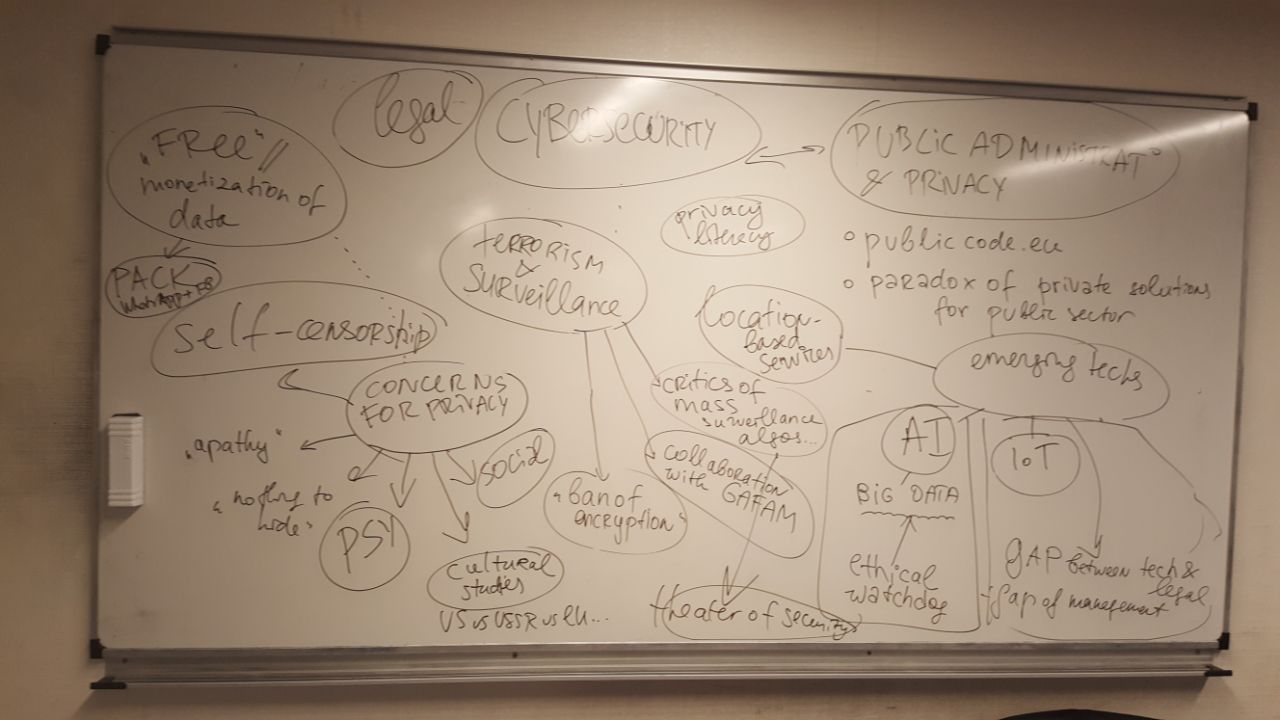 legal
CYBERSECURITY
"FREE" //
monetization of
data
PACK
WhatsApp + FB
PUBLIC ADMINISTRAT°
& PRIVACY
privacy
literacy
° public code.eu
° paradox of private solutions
for public sector
TERRORISM
&
SURVEILLANCE
self-censorship
CONCERNS
FOR PRIVACY
"apathy"
"nothing to
hide"
PSY
social
cultural
studies
US vs USSR vs EU...
"ban of
encryption"
critics of
mass
surveillance
algos...
collaboration
with GAFAM
theater of security
location-
based
services
emerging techs
AI
BIG DATA
ethical
watchdog
IoT
GAP between tech &
legal
+ gap of management